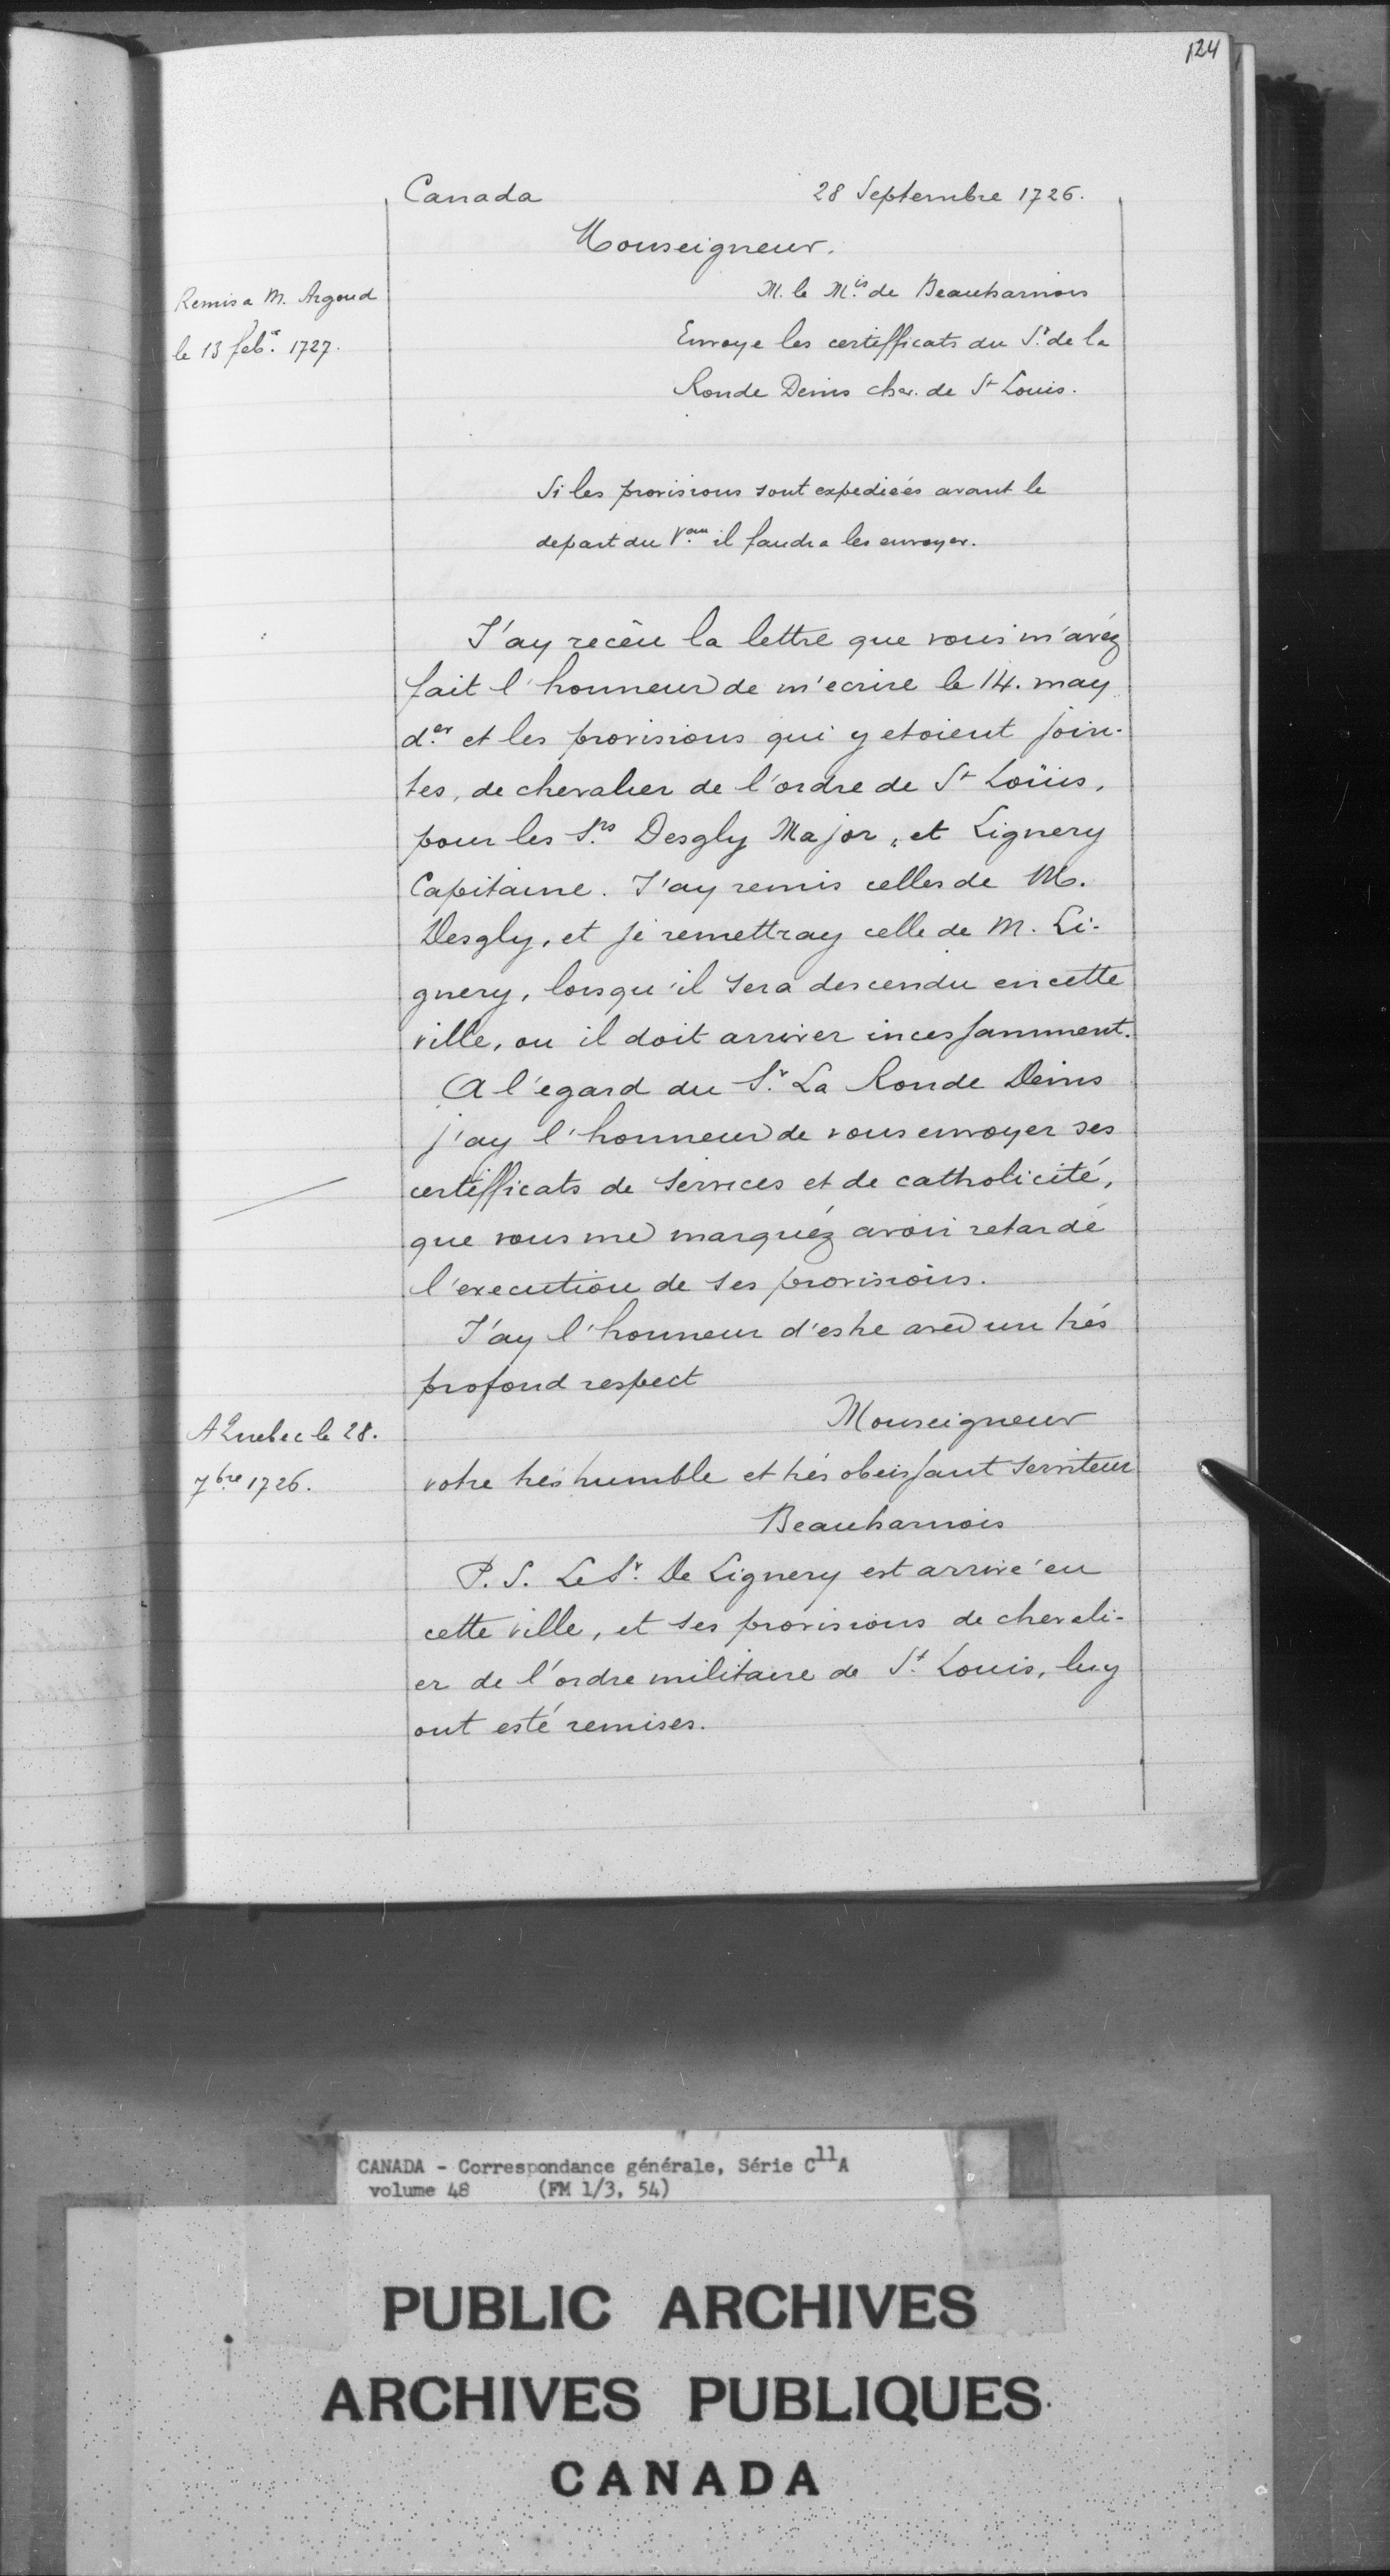 124
Canada 28 Septembre 1726.
Monseigneur.
Remis a M. Argoud
le 13 feb.r 1727.
M. le M.is de Beauharnois
Envoye les certifficats du S.r de la
Ronde Denis cher. de St Louis.
Si les provisions sont expediées avant le
depart du V.au il faudra les envoyer.
J'ay recêu la lettre que vous m'avéz
fait l'honneur de m'ecrire le 14. may
d.er et les provisions qui y etoient join-
tes, de chevalier de l'ordre de St Loüis,
pour les S.rs Desgly Major, et Lignery
Capitaine. J'ay remis celles de M.
Desgly, et je remettray celle de M. Li-
gnery, lorsqu'il sera descendu en cette
ville, ou il doit arriver incessamment.
A l'egard du S.r La Ronde Denis
j'ay l'honneur de vous envoyer ses
certifficats de services et de catholicité,
que vous me marquéz avoir retardé
l'execution de ses provisions.
J'ay l'honneur d'estre avec un trés
profond respect
Monseigneur
A Quebec le 28.
7bre 1726.
votre trés humble et trés obeissant serviteur
Beauharnois
P. S. Le S.r De Lignery est arrivé en
cette ville, et ses provisions de chevali-
er de l'ordre militaire de St. Louis, luy
ont esté remises.
CANADA - Correspondance générale, Série C11A
volume 48 (FM 1/3, 54)
PUBLIC ARCHIVES
ARCHIVES PUBLIQUES
CANADA